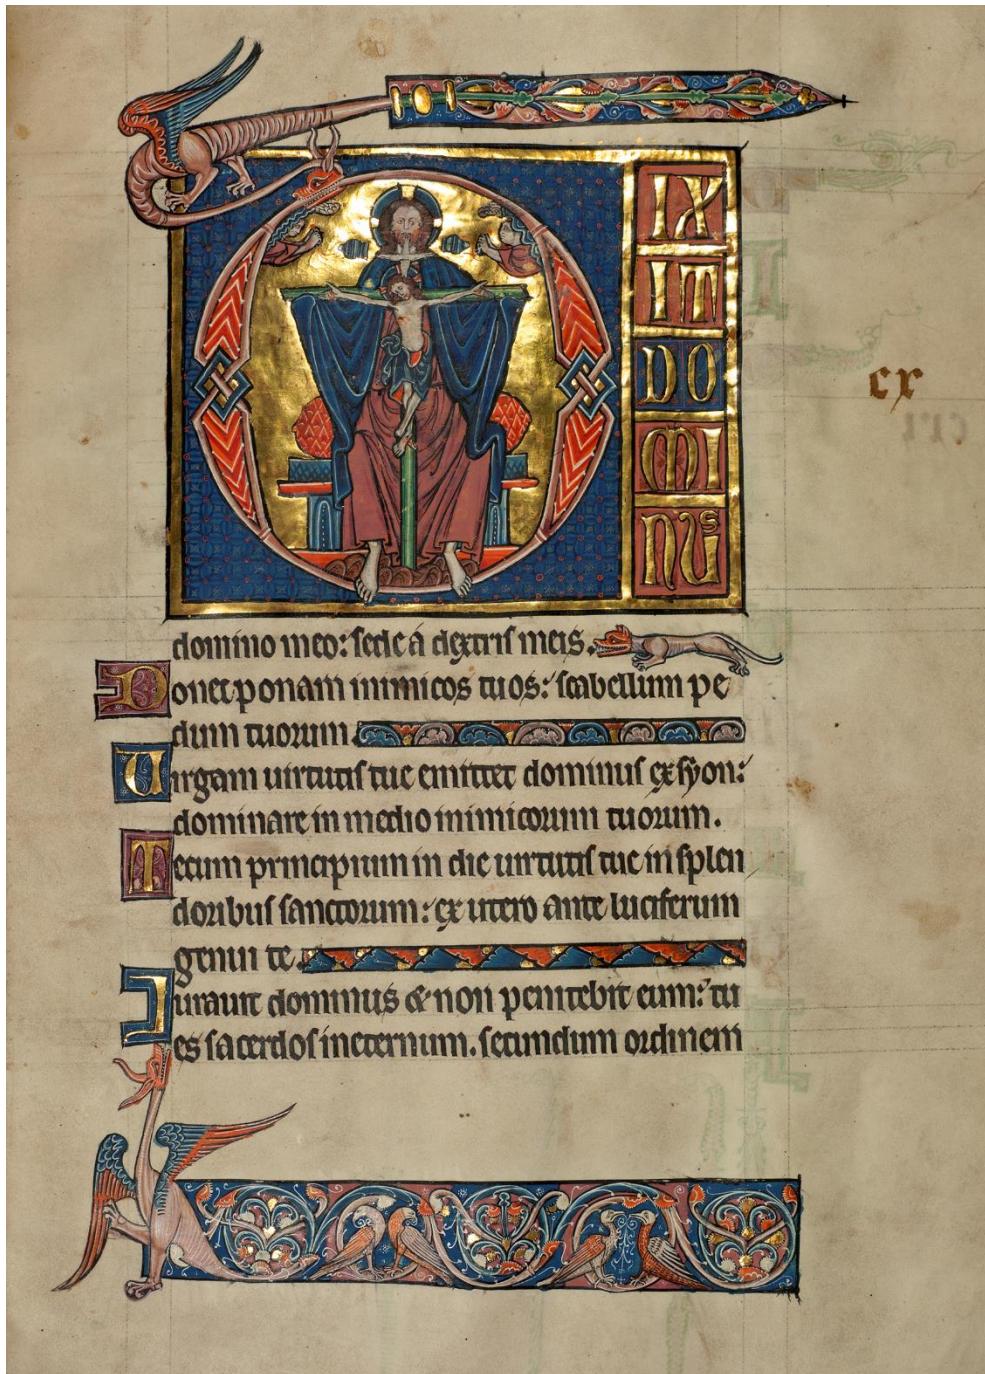 D
IX
IT
DO
MI
NUS
cx
domino meo: sede a dextris meis.
Donec ponam inimicos tuos: scabellum pe
dum tuorum.
Virgam uirtutis tue emittet dominus ex syon:
dominare in medio inimicorum tuorum.
Tecum principium in die uirtutis tue in splen
doribus sanctorum: ex utero ante luciferum
genui te.
Iurauit dominus & non penitebit eum: tu
es sacerdos ineternum. secundum ordinem